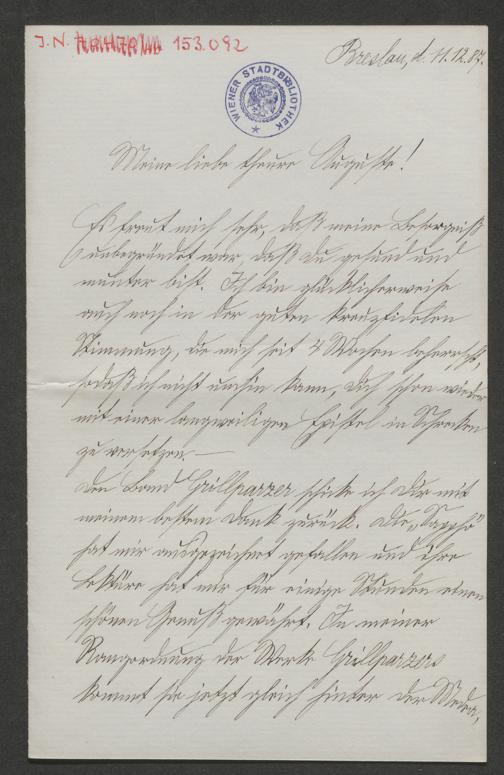 J. N. 153.092
Breslau, d. 11.12.87.
WIENER STADTBIBLIOTHEK
Meine liebe theure Auguste!
Es freut mich sehr, daß meine Besorgniß
unbegründet war, daß Du gesund und
munter bist. Ich bin glücklicherweise
auch noch in der guten kreuzfidelen
Stimmung, die mich seit 4 Wochen beherrscht,
sodaß ich nicht umhin kann, Dich schon wieder
mit einer langweiligen Epistel in Schrecken
zu versetzen. —
Den Band Grillparzer schicke ich Dir mit
meinem besten Dank zurück. Die „Sappho"
hat mir ausgezeichnet gefallen und ihre
Lektüre hat mir für einige Stunden einen
schönen Genuß gewährt. In meiner
Rangordnung der Werke Grillparzers
kommt sie jetzt gleich hinter der Medea,